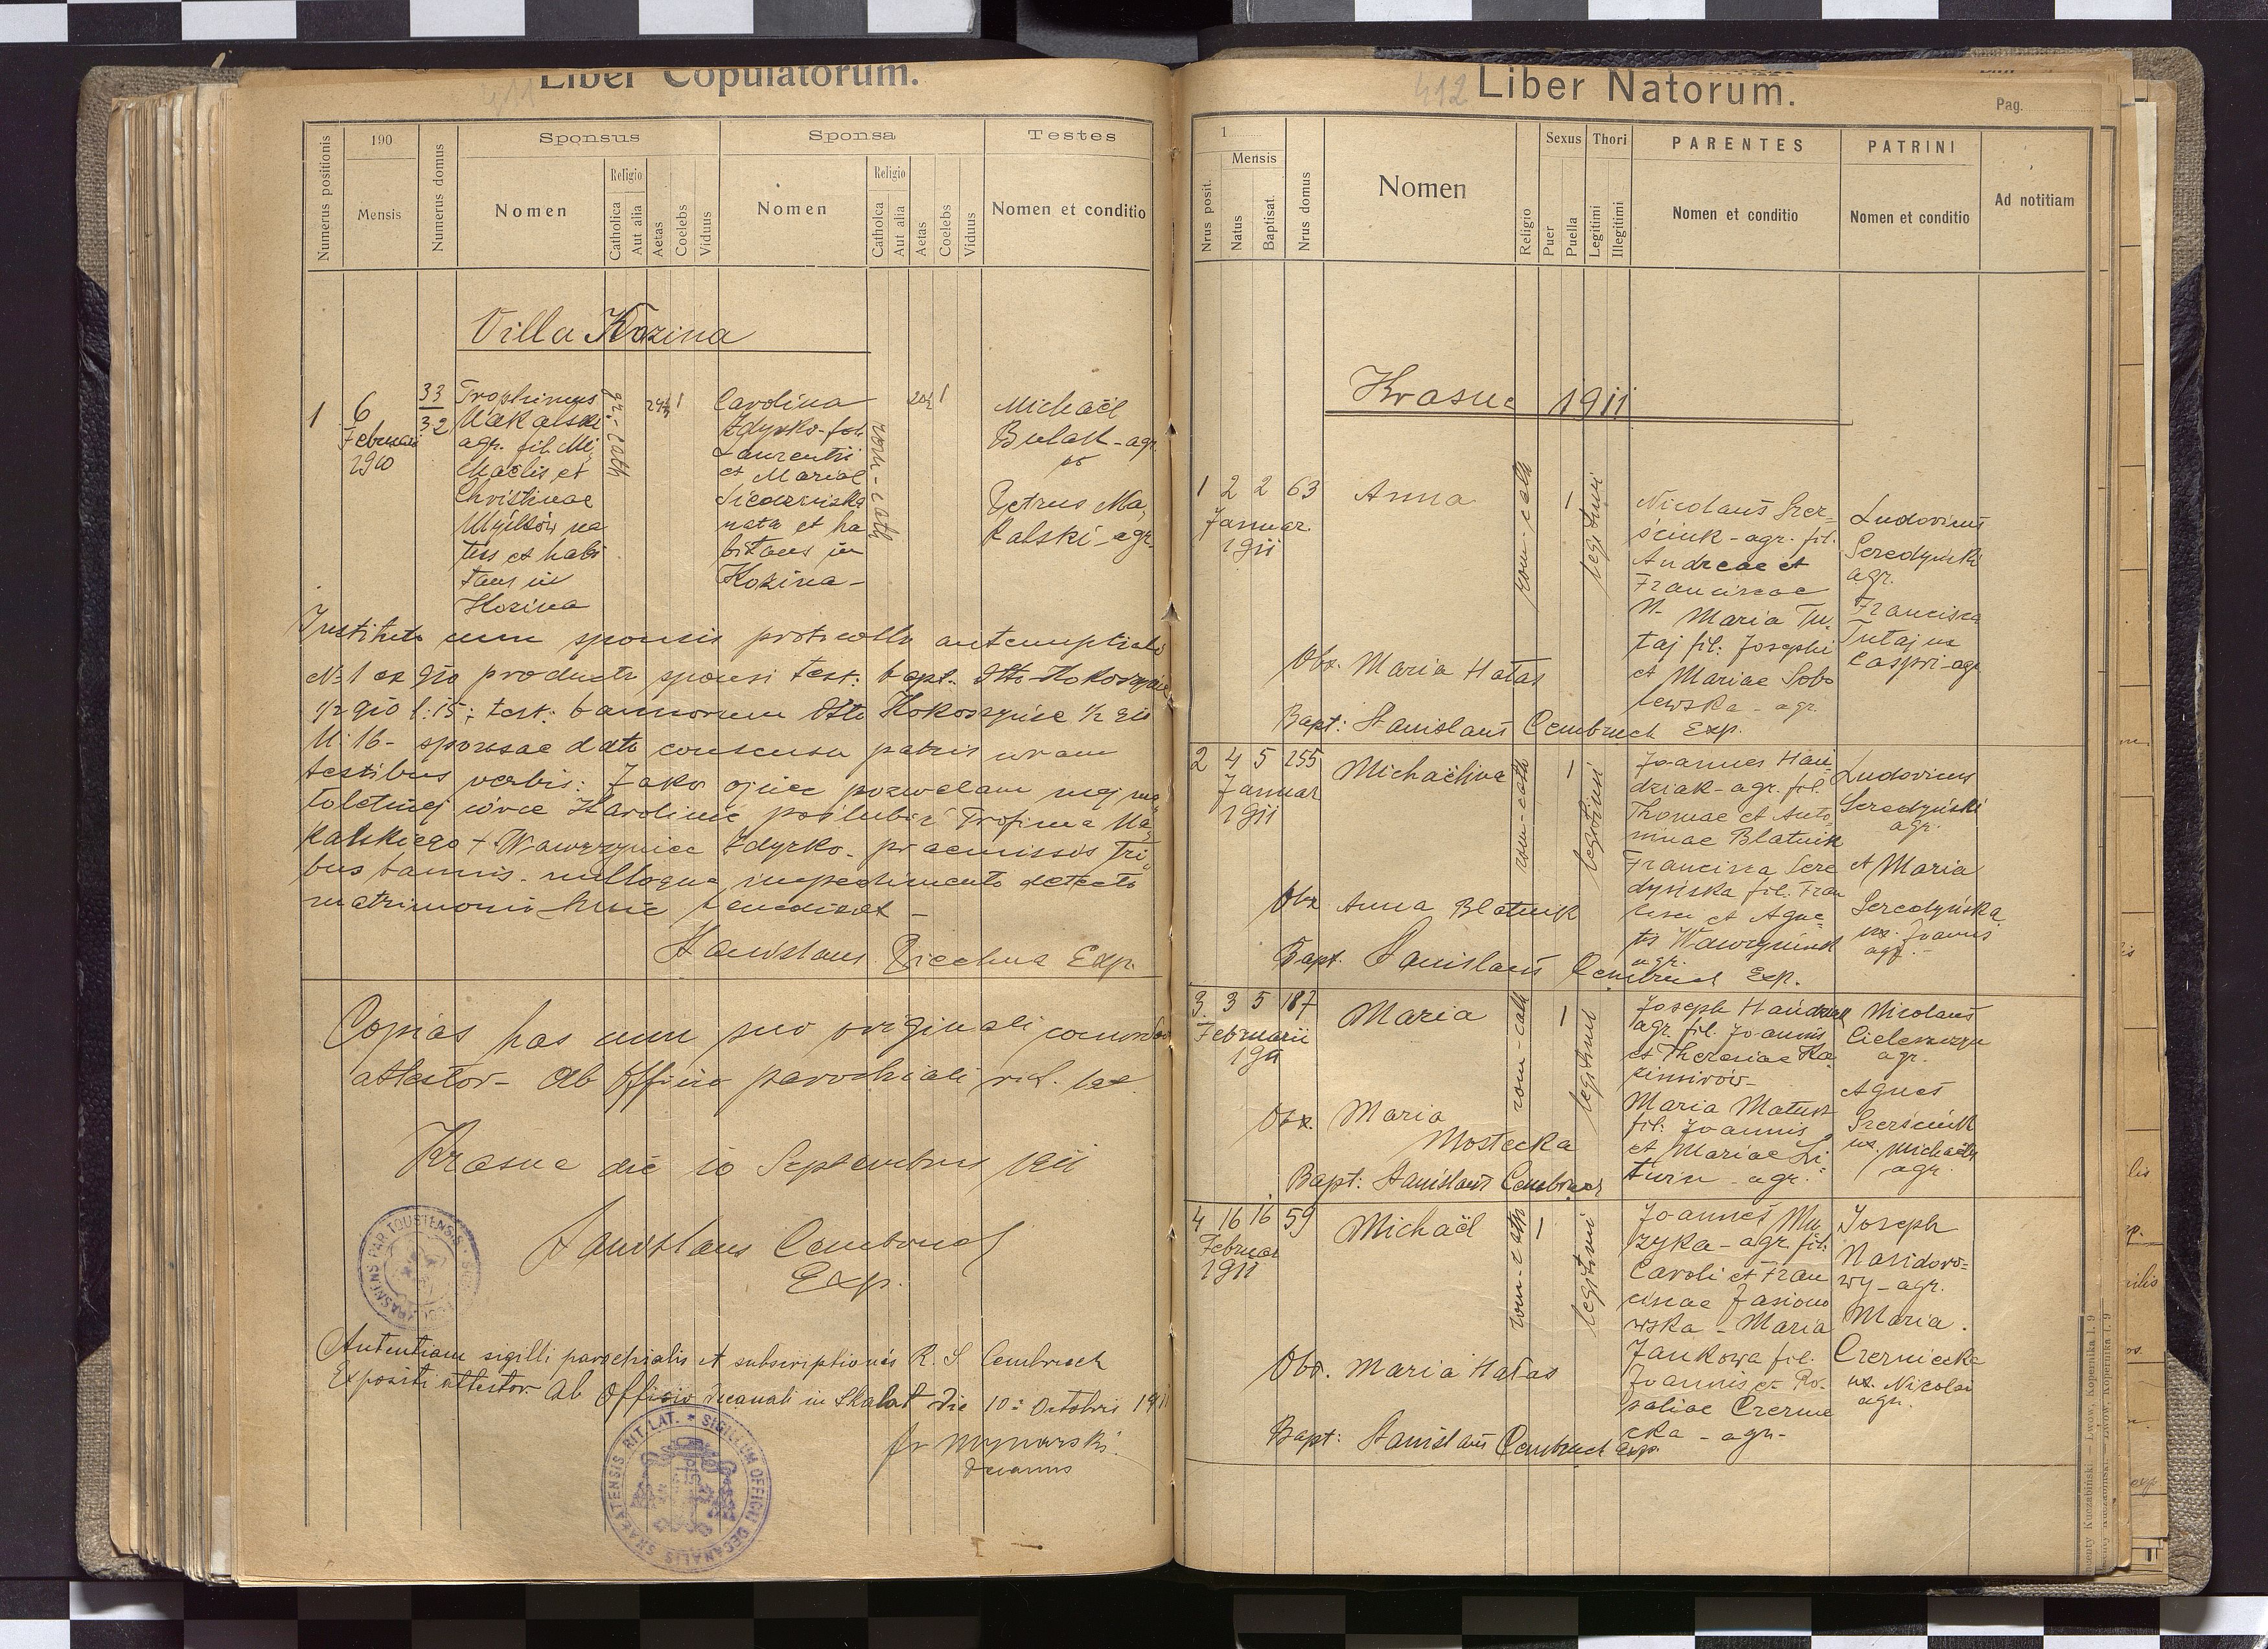 411
Liber Copulatorum.
Numerus positionis
190
Mensis
Numerus domus
Sponsus
Nomen
Religio
Catholica
Aut alia
Aetas
Coelebs
Viduus
Sponsa
Nomen
Religio
Catholca
Aut alia
Aetas
Coelebs
Viduus
Testes
Nomen et conditio
Villa Kozina
1
6
Februarii
1910
33
32
Trophimus
Makalski
agr. fil. Mi,
chaelis et
Christinae
na
tus et habi
tans in
Kozina
gr.-cath
24½
1
Carolina
Zdyrko - fil.
Laurentii
et Mariae
nata et ha
bitans in
Kozina -
rom-cath
20½
1
Michaël
Bulak - agr.
Petrus Ma,
kalski - agr.
cum sponsis protocollo antenuptiali
№ 1 ex 910 producto sponsi test: bapt.
1/2 910 l: 15; test: bannorum Kokoszyńce 1/2 910
N: 16 - sponsae dato consensu patris coram
testibus verbis: Jako ojciec pozwalam mej ma
łoletniej córce Karolinie poślubić Trofima Ma
kalskiego + Wawrzyniec Zdyrko - praemissis tri
bus bannis - nulloque impedimento detecto
matrimonio huic benedixit -
Stanislaus Exp.
Copias has cum suo originali
attestor - Ab Officio parochiali rit. lat.
Krasne die 10 Septembris 1911
Stanislaus Cembruch
Exp.
Autentiam sigilli parochialis et subscriptionis R. S. Cembruch
Expositi attestor. Ab Officio Decanali in Skałat die 10: Octobris 1911
Decanus
SIGILLUM OFFICII DECANALIS SKAŁATENSIS RIT. LAT.
412
Liber Natorum.
Pag.
1
Nrus posit.
Mensis
Natus
Baptisat.
Nrus domus
Nomen
Religio
Sexus
Puer
Puella
Thori
Legitimi
Illegitimi
PARENTES
Nomen et conditio
PATRINI
Nomen et conditio
Ad notitiam
Krasne 1911
1 2 2 63
Januar
1911
Anna
rom-cath
1
legitimi
Nicolaus Szer=
ściuk - agr. fil.
Andreae et
Franciscae
N. Maria Tu,
taj fil: Josephi
et Mariae Sobo
lewska - agr.
Ludovicus
Seredyński
agr.
Francisca
Tutaj ux
Caspri - agr
Obx. Maria Hałas
Bapt: Stanislaus Cembruch Exp.
2 4 5 255
Januar
1911
Michaëlina
rom-cath
1
legitimi
Joannes Han-
dziak - agr. fil.
Thomae et Anto
ninae Blatnik
Francisca Sere
dyńska fil. Fran
cisci et Agne
tis
agr.
Ludovicus
Seredyński
agr.
et Maria
Seredyńska
ux. Joannis
agr.
Obx Anna Blatnik
Bapt. Stanislaus Cembruch Exp.
3. 3 5 187
Februarii
1911
Maria
rom-cath
1
legitimi
Joseph Handziak
agr. fil. Joannis
et Theresiae Ka
zimirów -
Maria Matusz
fil: Joannis
et Mariae Li
twin - agr.
Nicolaus
agr.
Agnes
Szerściuk
ux. Michaëlis
agr.
Obx. Maria
Mostecka
Bapt: Stanislaus Cembruch
4 16 16 59
Februar
1911
Michaël
rom-cath
1
legitimi
Joannes Mu
zyka - agr. fil:
Caroli et Fran
ciscae Jasiono
wska - Maria
Jankowa fil.
Joannis et Ro-
saliae Czerne
cka - agr -
Joseph
wy - agr.
Maria.
Czerniecka
ux. Nicolai
agr.
Obx. Maria Hałas
Bapt: Stanislaus Cembruch Exp.